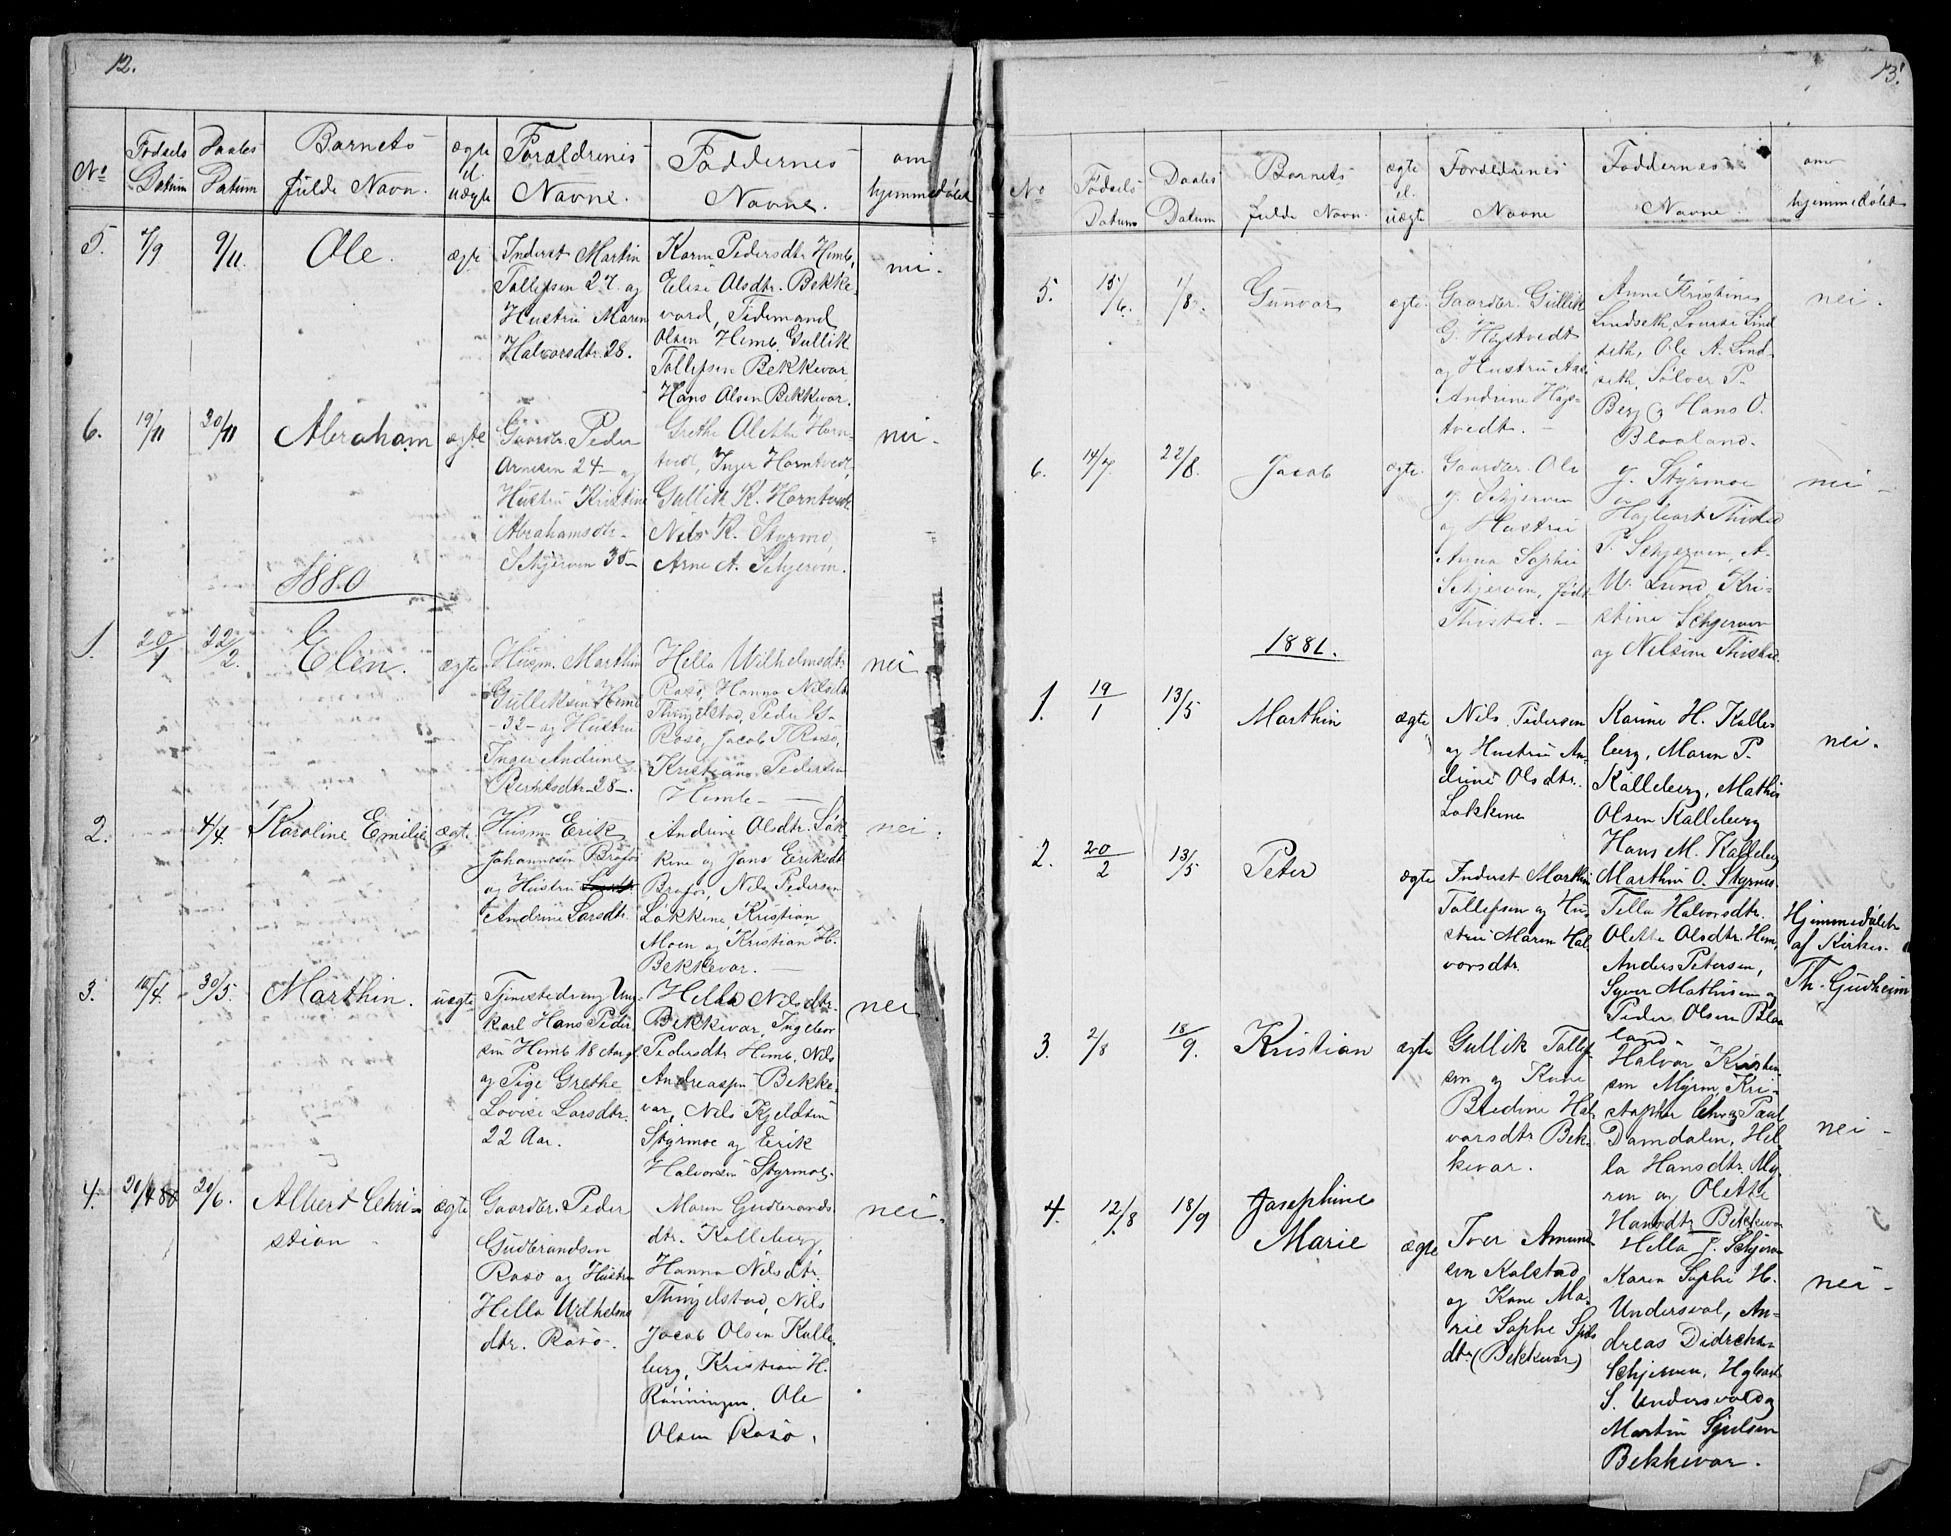 12.
No Fødsels Datum Daabs Datum Barnets fulde Navn. ægte el. uægte Forældrenes Navne. Faddernes Navne. om hjemmedøbt
5. 7/9 9/11 Ole. ægte nei.
Inderst Martin
Tollefsen 27 og
Hustru Maren
Halvorsdtr. 28.
Karen Pedersdtr. Himb,
Elise Olsdtr. Bekke-
vard, Tidemand
Olsen Himb, Gullik
Tollefsen Bekkevar,
Hans Olsen Bekkevar.
6. 19/11 30/11 Abraham ægte nei.
Gaardbr. Peder
Arnesen 24 og
Hustru Kristine
Abrahamsdtr.
Skjerven 35-
Grethe Olette Horn-
tvedt, Inger Horntvedt,
Gullik K. Horntvedt
Nils K. Styrmo,
Arne A. Skjerven.
1880
1. 20/1 22/2. Elen. ægte nei
Husm. Marthin
Gulleksen Himb
-32- og Hustru
Inger Andrine
-28-.
Hella Wilhelmsdtr
Rosø, Hanna Nilsdtr
Thingelstad, Peder G.
Rosø, Jacob T. Rosø,
Kristians Pedersen
Himb-
2. 4/4. Karoline Emilie ægte nei.
Husm. Erik
Johannesen Brofos
og Hustru
Andrine Larsdtr.
Andrine Olsdtr. Løk-
kene og Jans Eriksdtr
Brofos, Nils Pedersen
Løkkene, Kristian
Moen og Kristian H.
Bekkevar.
3. 10/4. 30/5. Marthin. uægte nei
Tjenestedreng Ung-
karl Hans Peder-
sen Himb 18 Aar gl
og Pige Grethe
Lovise Larsdtr.
22 Aar.
Hella Nilsdtr
Bekkevar, Ingebor
Pedersdtr Himb, Nils
Andreassen Bekke-
var, Nils Kjeldsen
Styrmoe og Erik
Halvorsen Styrmoe.
4. 20/4 80 20/6. Albert Chri-
stian ægte nei.
Gaardbr. Peder
Gudbrandsen
Rosø og Hustru
Hella Wilhelms
dtr. Rosø.
Maren Gudbrands-
dtr. Kalleberg,
Hanna Nilsdtr.
Thingelstad, Nils
Jacob Olsen Kalle-
berg, Kristian H.
Rønningen, Ole
Olsen Rosø.
13.
No Fødsels Datum Daabs Datum Barnets fulde Navn. ægte el. uægte Forældrenes Navne Faddernes Navne om hjemmedøbt
5. 15/6. 1/8. Gunvar ægte. nei.
Gaardbr. Gullik
G. Høgstvedt
og Hustru Aase
Andrine Høgs-
tvedt.
Anne Kristine
Lindseth, Lovise Lind-
seth, Ole A. Lind-
seth, Sølver P.
Berg og Hans O.
Blaaland.
6. 14/7. 22/8. Jacob ægte. nei
Gaardbr. Ole
J. Skjerven
og Hustru
Anna Sophie
Skjerven, født
Thistad.
J. Styrmoe
og
Hagbart Thistad
P. Skjerven, A-
W. Lund, Kri-
stine Skjerven
og Nilsine Thistad.
1881.
1. 19/1 13/5 Marthin ægte nei.
Nils Pedersen
og Hustru An-
drine Olsdtr.
Løkkene
Karine H. Kalle-
berg, Maren P.
Kalleberg, Mathis
Olsen Kalleberg
Hans M. Kalleberg
2. 20/2 13/5 Peter ægte
Inderst Marthin
Tollefsen og Hu-
stru Maren Hal
vorsdtr.
Marthin O. Styrmo.
Tella Halvorsdtr.
Olette Olsdtr. Him,
Anders Petersen,
Syver Mathisen og
Peder Olsen Blaa
land.
Hjemmedøbt
af Kirkes.
Th. Gudheim
3. 2/8 18/9. Kristian ægte nei
Gullik Tollef-
sen og Kone
Bredine Hal-
vorsdtr Bek-
kevar.
Halvor Kristen-
sen Myren, Kri-
stopher og Paul
Damdalen, Hel-
la Hansdtr. My-
ren og Olette
Hansdtr Bekkevar
4. 12/8 18/9 Josephine
Marie ægte nei
Iver Amund-
sen Kalstad
og Kone Ma-
rie Sophe
dtr (Bekkevar)
Hella J. Skjerven
Karen Sophi H.
Undersvol, An-
dreas Didrekss-
Skjerven, Hgbart
S. Undersvold og
Martin Sjulsen
Bekkevar.